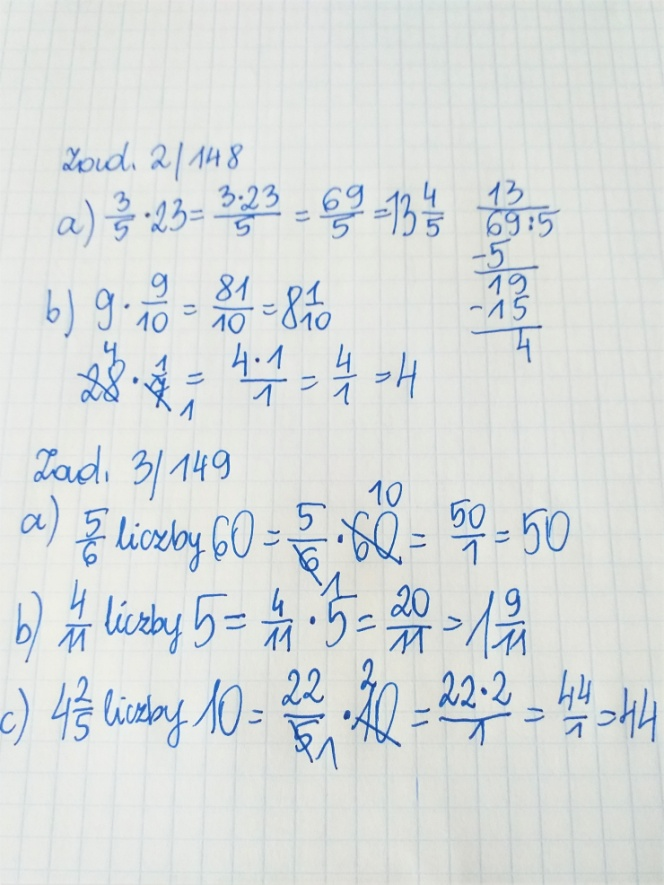 Zad. 2/148
a) 3/5 · 23 = 3·23/5 = 69/5 = 13 4/5
13
69:5
-5
19
-15
4
b) 9 · 9/10 = 81/10 = 8 1/10
4
28 · 1/7 = 4·1/1 = 4/1 = 4
1
Zad. 3/149
10
a) 5/6 liczby 60 = 5/6 · 60 = 50/1 = 50
1
b) 4/11 liczby 5 = 4/11 · 5 = 20/11 = 1 9/11
2
c) 4 2/5 liczby 10 = 22/5 · 10 = 22·2/1 = 44/1 = 44
1